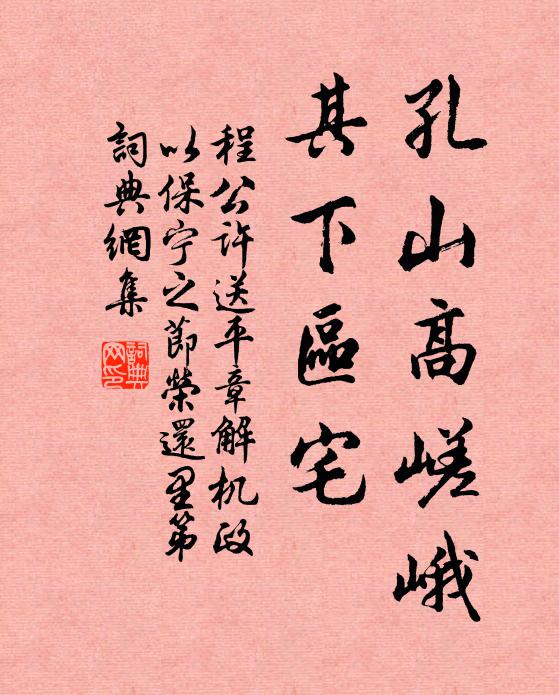 孔山高嵯峨
其下區宅
程公许送平章解机政
以保宁之节榮還里第
詞典網集
詞典網印